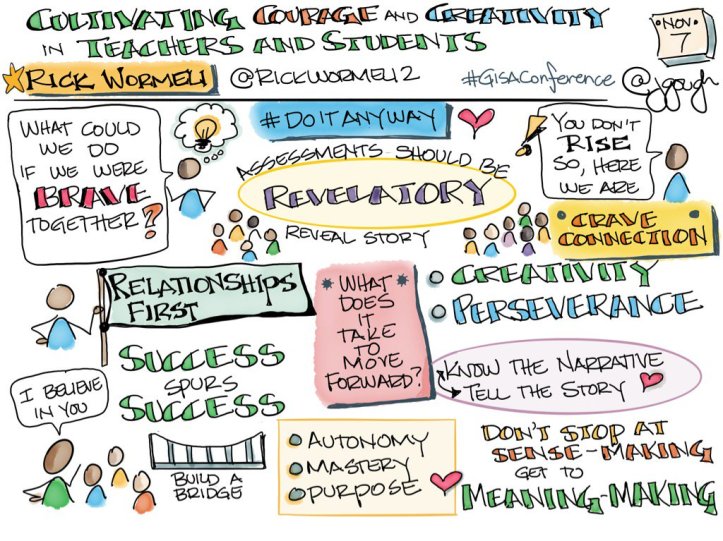 CULTIVATING COURAGE AND CREATIVITY
IN TEACHERS AND STUDENTS
NOV.
7
RICK WORMELI
@RICKWORMELI2
#GISAConference
@jgough
WHAT COULD
WE DO
IF WE WERE
BRAVE
TOGETHER?
#DOITANYWAY
ASSESSMENTS SHOULD BE
REVELATORY
REVEAL STORY
YOU DON'T
RISE
SO, HERE
WE ARE
CRAVE
CONNECTION
RELATIONSHIPS
FIRST
* WHAT *
DOES
IT
TAKE
TO
MOVE
FORWARD?
CREATIVITY
PERSEVERANCE
SUCCESS
SPURS
SUCCESS
KNOW THE NARRATIVE
TELL THE STORY
I BELIEVE
IN YOU
BUILD A
BRIDGE
AUTONOMY
MASTERY
PURPOSE
DON'T STOP AT
SENSE-MAKING
GET TO
MEANING-MAKING